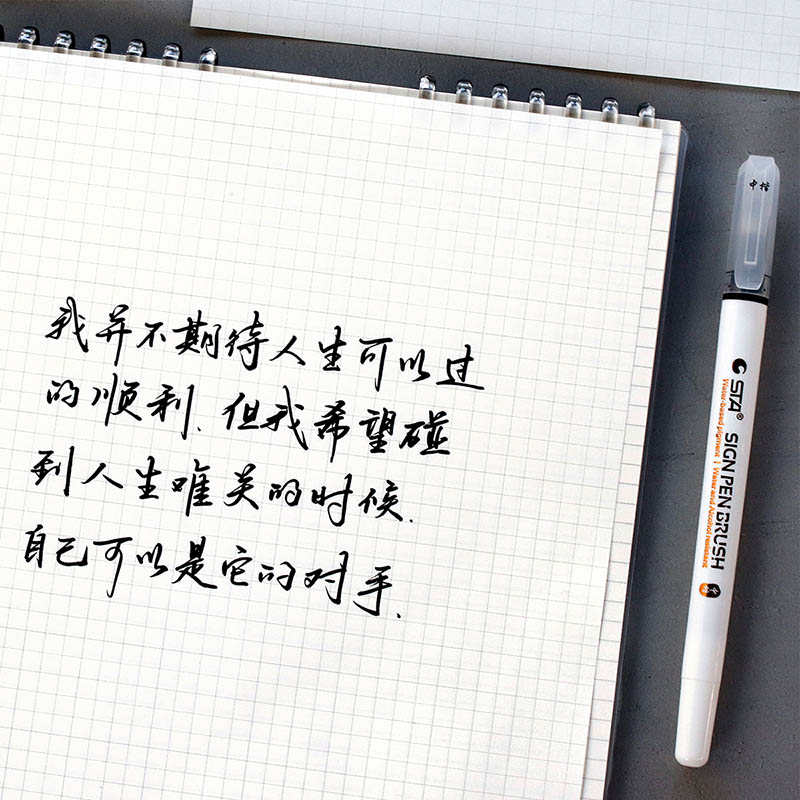 我并不期待人生可以过
的顺利.但我希望碰
到人生唯关的时候.
自己可以是它的对手.
中楷
STA®
SIGN PEN BRUSH
Water-based pigment | Water and Alcohol resistant